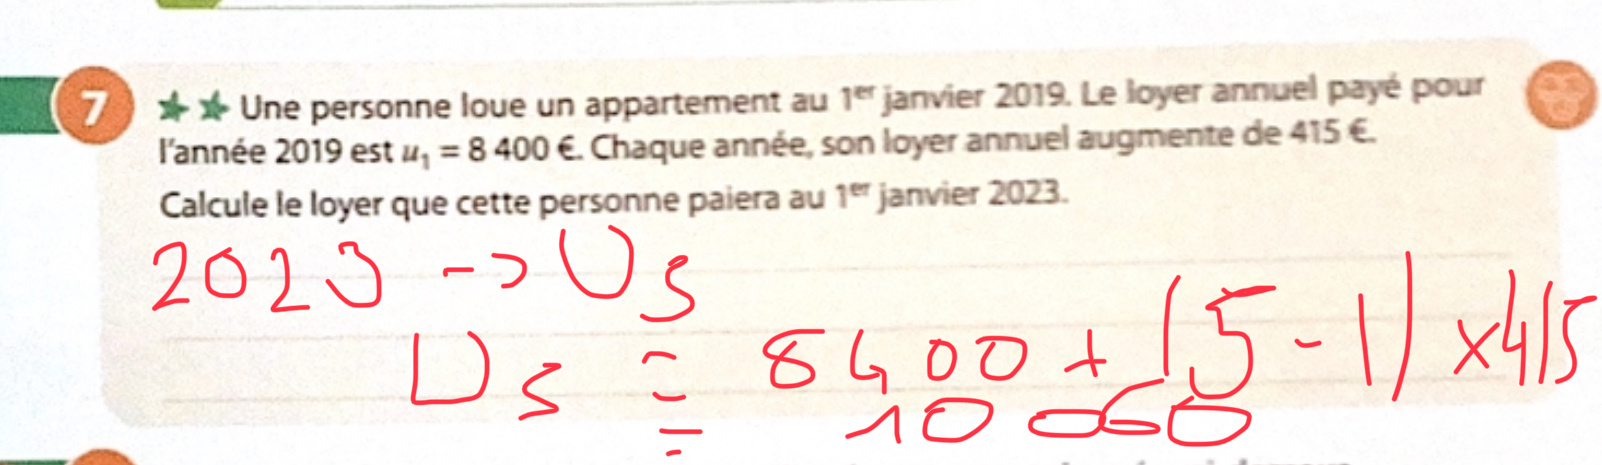 7 Une personne loue un appartement au 1er janvier 2019. Le loyer annuel payé pour
l'année 2019 est u₁ = 8 400 €. Chaque année, son loyer annuel augmente de 415 €.
Calcule le loyer que cette personne paiera au 1er janvier 2023.
2023 -> U5
U5 = 8400 + (5-1) x415
= 10 060